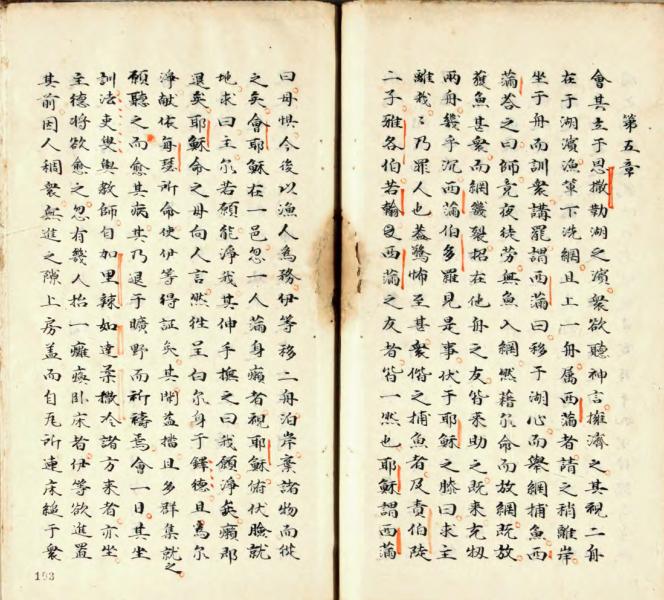 第五章
會其立于恩撒勒湖之濱衆欲聽神言擁濟之其視二舟
在于湖濱漁軰下洗網且上一舟属西蒲者請之稍離岸
坐于舟而訓衆講罷謂西蒲曰移于湖心而舉網捕魚西
蒲荅之曰師竟夜徒劳無魚入網然藉尔命而放網既放
獲魚甚衆而網幾裂招在他舟之友皆来助之既来充牣
兩舟幾乎沉西蒲伯多羅見是事伏于耶穌之膝曰求主
離我乃罪人也葢驚怖至甚衆偕之捕魚者及責伯陡
二子雅各伯若翰西蒲之友者皆一然也耶穌謂西蒲
曰毋惧今後以漁人為務伊等移二舟泊岸棄諸物而従
之矣會耶穌在一邑忽一人蒲身癩者視耶穌俯伏臉就
地求曰主尔若願能淨我其伸手撫之曰我願淨矣癩即
退矣耶穌命之毋向人言然徃呈白尔身于鐸德且為尔
淨献依每瑟所命使伊等得証矣其聞益揚且多群集就之
願聽之而愈其病其乃退于曠野而祈禱焉會一日其坐
訓法吏嶴與教師自加里辣如達柔撒冷諸方来者亦坐
主德将欲愈之忽有幾人抬一癱瘓卧床者伊等欲進置
其前因人稠衆無進之隙上房盖而自瓦所連床縋于衆
193